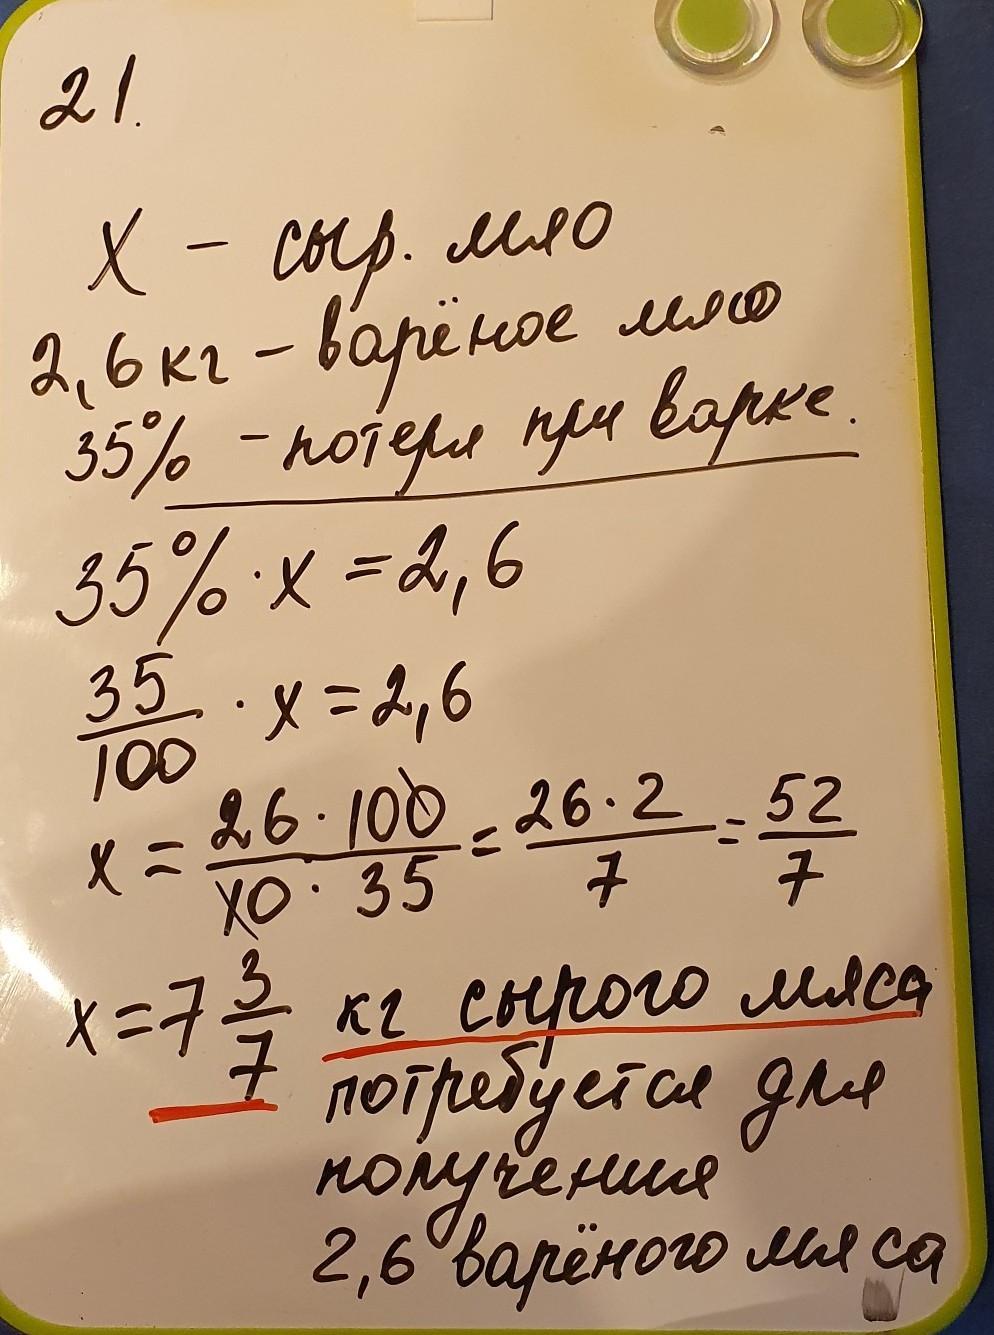 21.
X – сыр. мясо
2,6 кг – варёное мясо
35% – потеря при варке.
35% · x = 2,6
35/100 · x = 2,6
x = 26 · 100/10 · 35 = 26 · 2/7 = 52/7
x = 7 3/7 кг сырого мяса
потребуется для
получения
2,6 варёного мяса